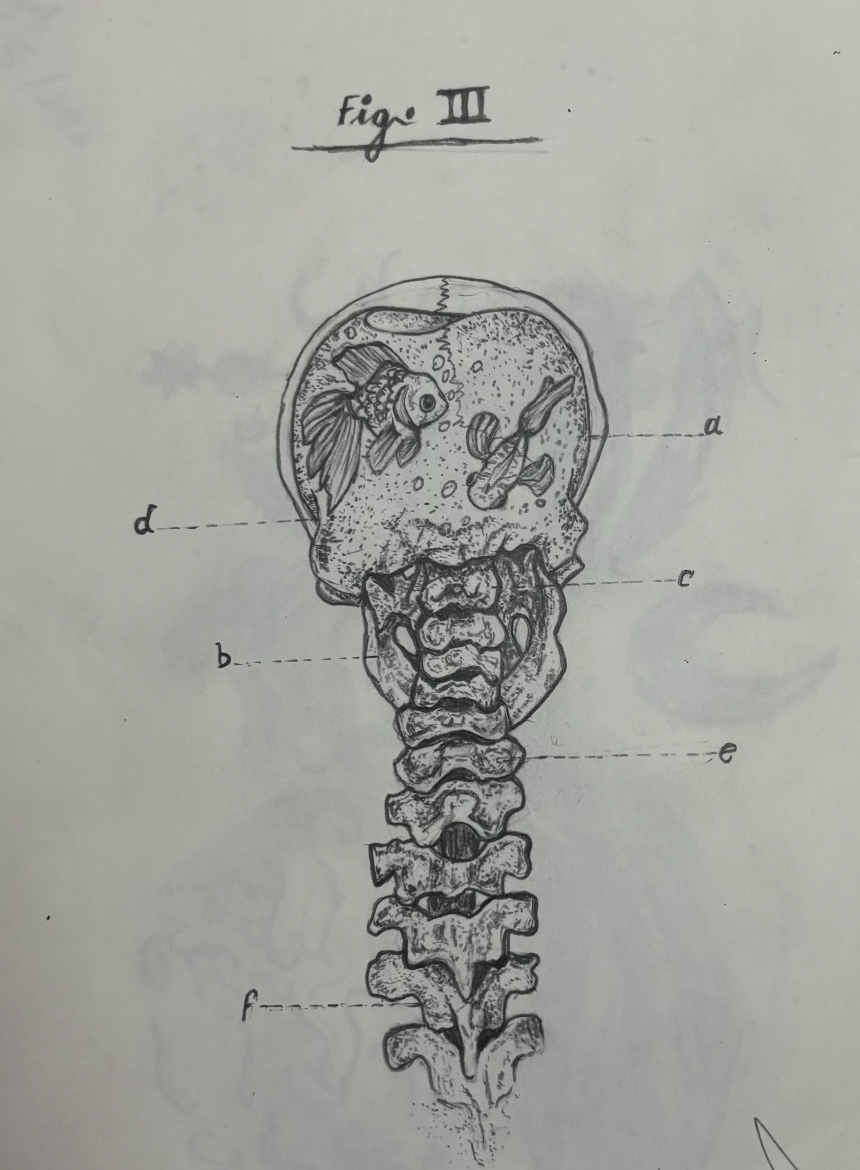 Fig. III
a
d
c
b
e
f